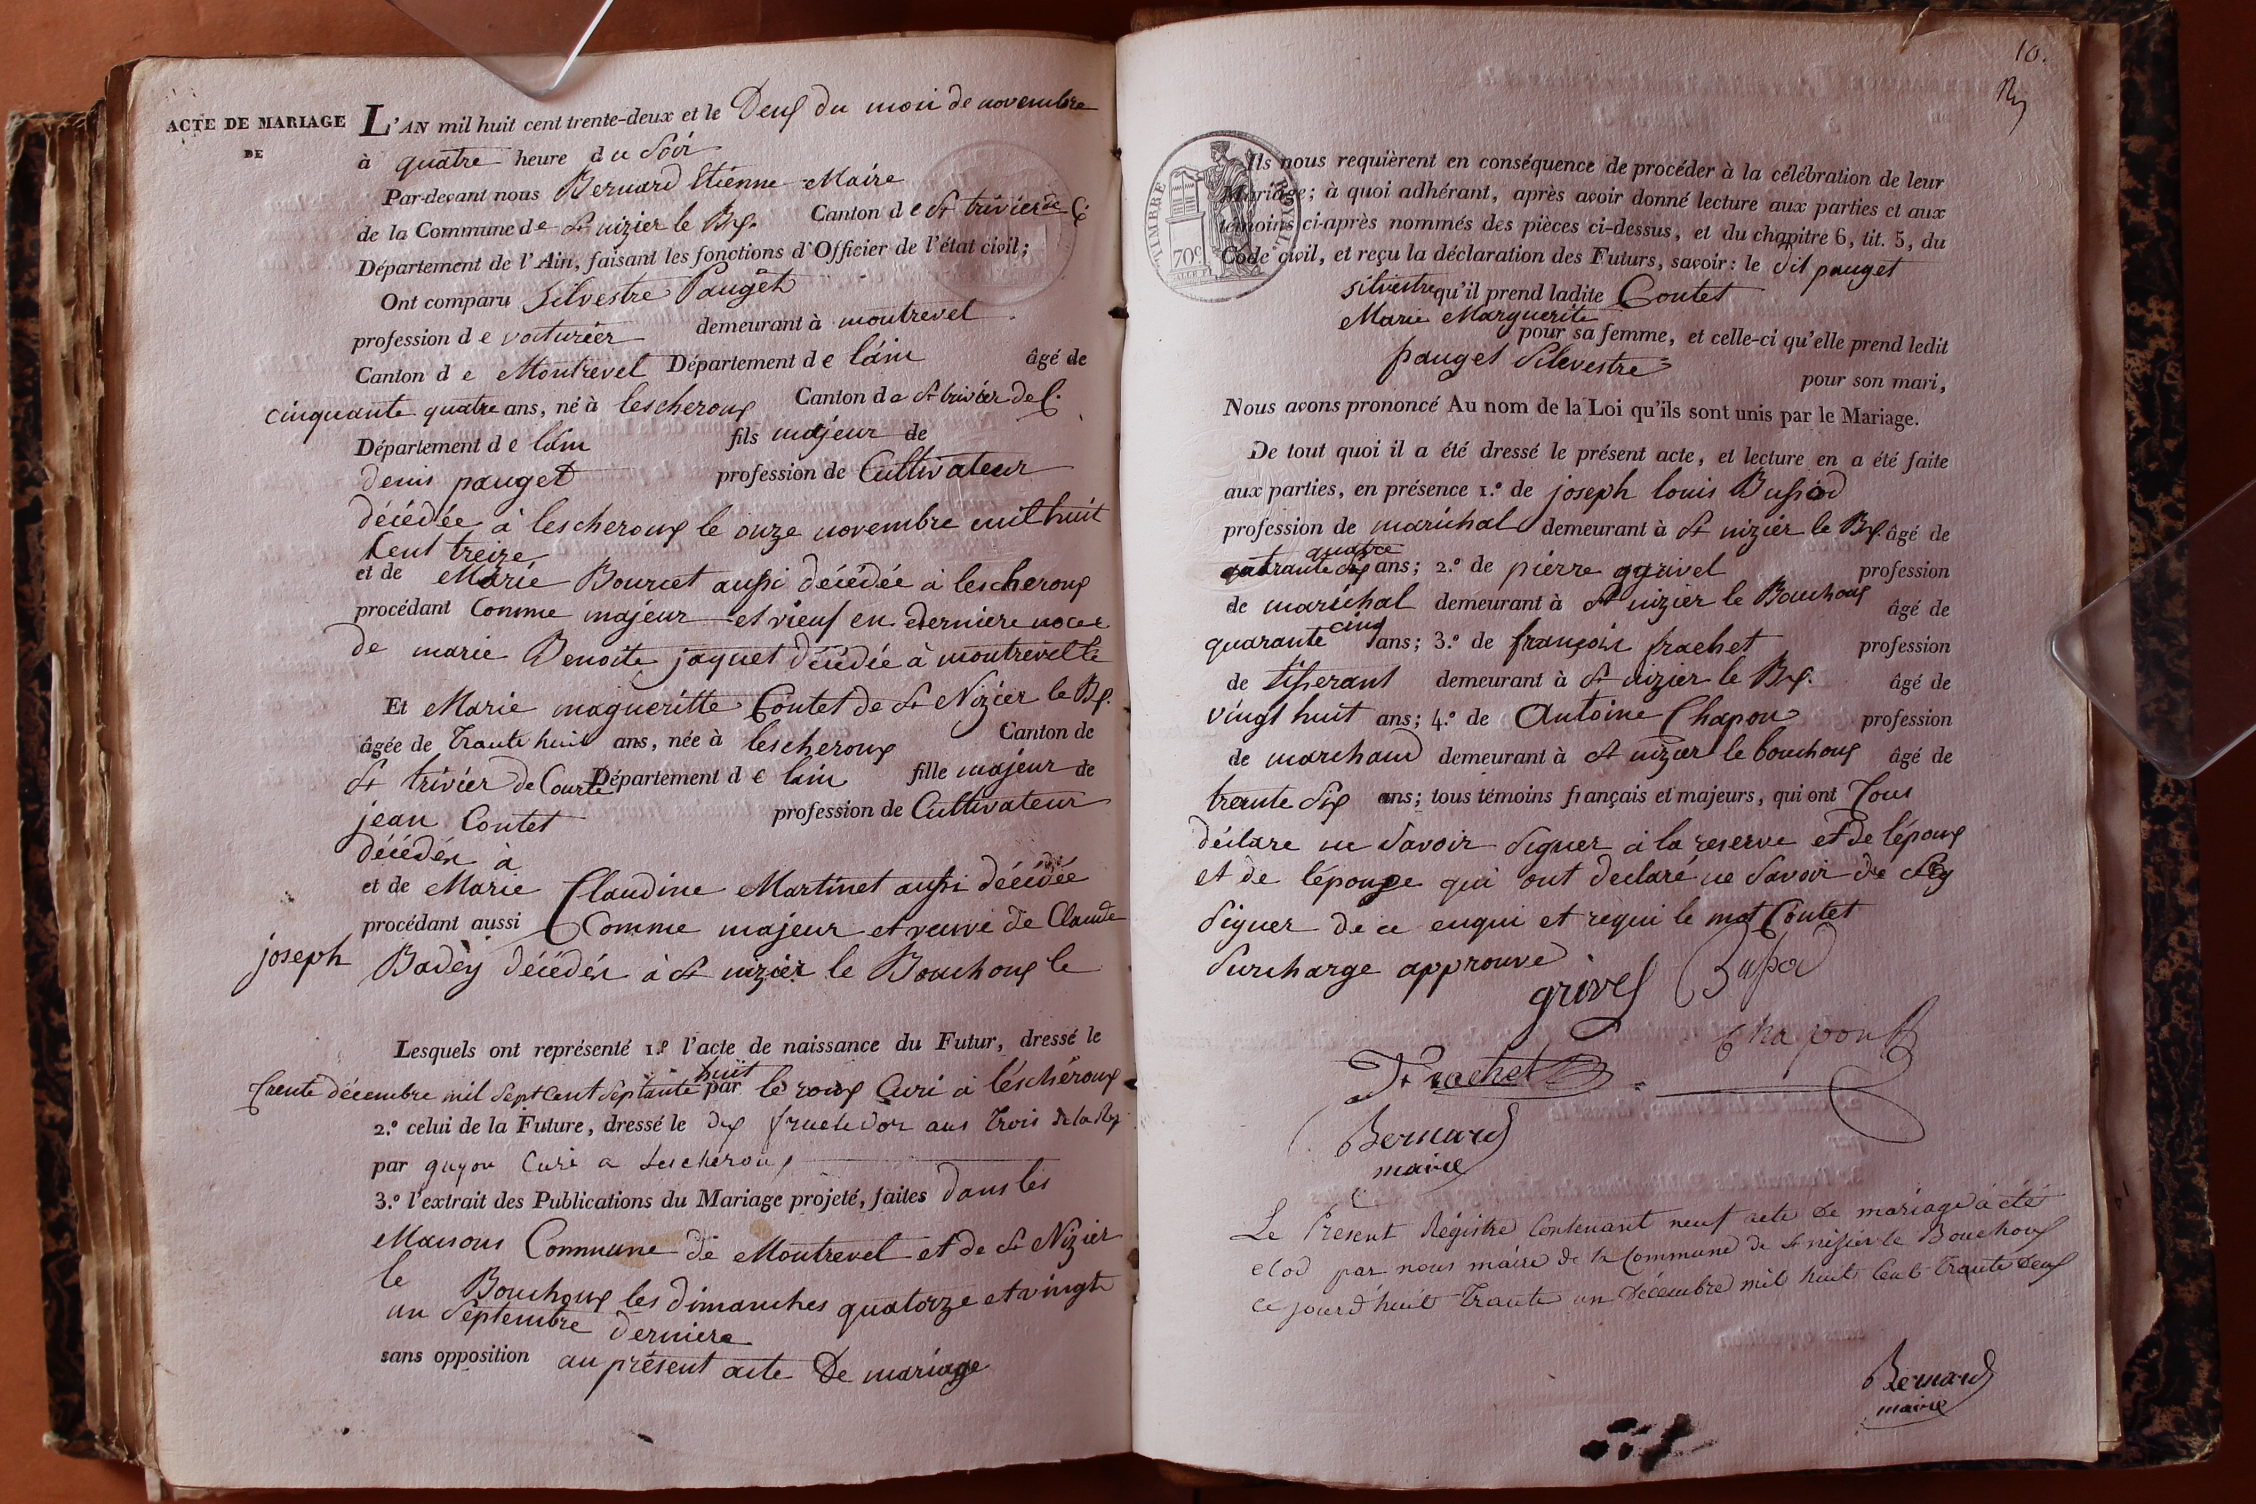 ACTE DE MARIAGE
DE
L'AN mil huit cent trente-deux et le Deux du mois de novembre
à quatre heure du Soir
Par-devant nous Bernard Etienne Maire
de la Commune de St nizier le Bx. Canton de St trivier de C.
Département de l'Ain, faisant les fonctions d'Officier de l'état civil;
Ont comparu Silvestre Pauget
profession de voiturier demeurant à montrevel
Canton de Montrevel Département de lain âgé de
cinquante quatre ans, né à lescheroux Canton de St trivier de C.
Département de lain fils majeur de
denis pauget profession de Cultivateur
décédée à lescheroux le onze novembre mil huit
Cent treize
et de Marie Bourcet aussi décédée à lescheroux
procédant Comme majeur et vieuf en derniere noce
de marie Benoite jaquet décédée à montrevel le
Et Marie magueritte Contet de St Nizier le Bx.
âgée de Trante huit ans, née à lescheroux Canton de
St trivier de Courte Département de lain fille majeur de
jean Contet profession de Cultivateur
décédér à
et de Marie Claudine Martinet aussi décédée
procédant aussi Comme majeur et veuve de Claude
joseph Badey décédér à St nizier le Bouchoux le
Lesquels ont représenté 1.º l'acte de naissance du Futur, dressé le
trente décembre mil Sept Cent Septante huit par le roux Curi à léschéroux
2.º celui de la Future, dressé le dix fructidor ans trois de la Rep
par guyon Curé a Lescheroux
3.º l'extrait des Publications du Mariage projeté, faites dans les
Maisons Commune de Montrevel et de St Nizier
le Bouchoux les dimanches quatorze et vingt
un Septembre derniere
sans opposition au présent acte De mariage
10.
TIMBRE ROYAL
70c
Ils nous requièrent en conséquence de procéder à la célébration de leur
Mariage; à quoi adhérant, après avoir donné lecture aux parties et aux
témoins ci-après nommés des pièces ci-dessus, et du chapitre 6, tit. 5, du
Code civil, et reçu la déclaration des Futurs, savoir: le dit pauget
silvestre qu'il prend ladite Contet
Marie Marguerite
pour sa femme, et celle-ci qu'elle prend ledit
pauget Silevestre
pour son mari,
Nous avons prononcé Au nom de la Loi qu'ils sont unis par le Mariage.
De tout quoi il a été dressé le présent acte, et lecture en a été faite
aux parties, en présence 1.º de joseph louis Bussod
profession de maréchal demeurant à St nizier le Bx. âgé de
quatre
quarante six ans; 2.º de pierre grivel profession
de maréchal demeurant à St nizier le Bouchoux âgé de
quarante cinq ans; 3.º de françois frachet profession
de tisserant demeurant à St nizier le Bx. âgé de
vingt huit ans; 4.º de Antoine Chapon profession
de marchand demeurant à St nizier le bouchoux âgé de
trente six ans; tous témoins français et majeurs, qui ont Tous
déclare ne Savoir Signer à la reserve et de lépoux
et de lépouse qui ont declaré ne Savoir de
Signer de ce enqui et requi le mot Contet
Surcharge approuvé
grivel Bussod
Frachet Chapon
Bernard
maire
Le Présent Régistre Contenant neuf acte de mariage à été
clod par nous maire de la Commune de St nisier le Bouchoux
ce jourd'huit Trante un Décembre mil huit Cent Trante deux
Bernard
maire